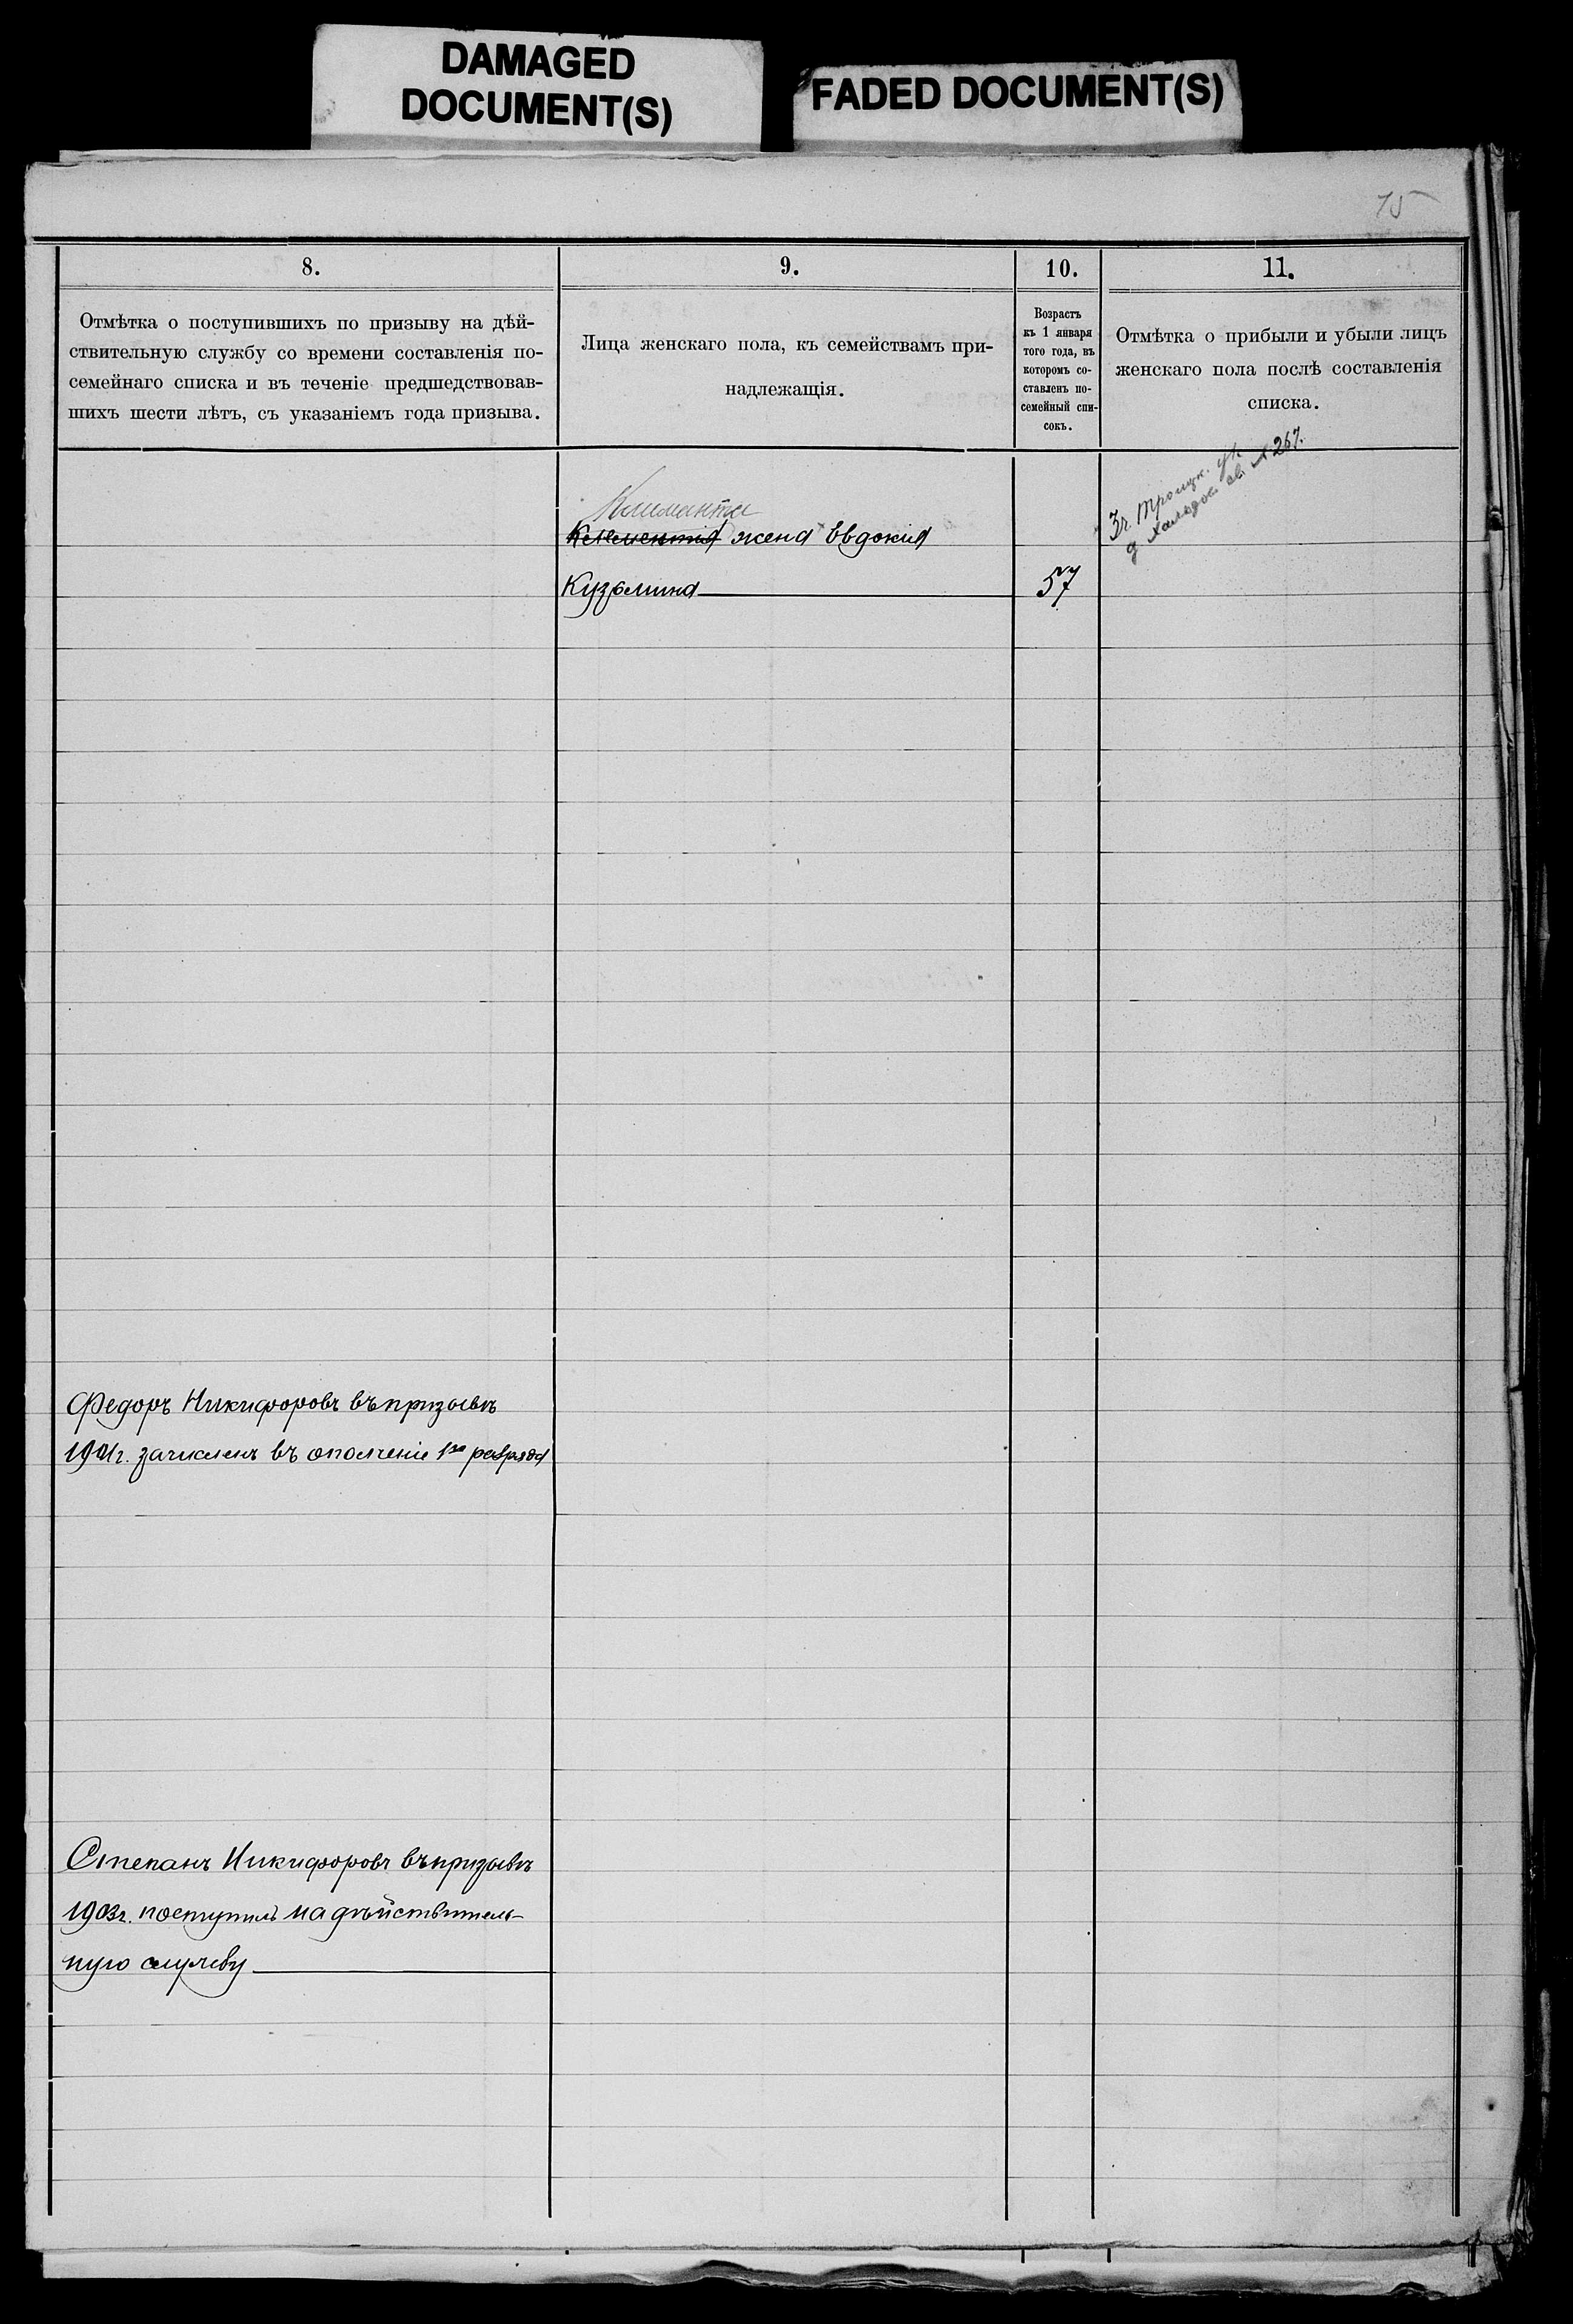 DAMAGED
DOCUMENT(S)
FADED DOCUMENT(S)
15
8.
Отмѣтка о поступившихъ по призыву на дѣй-
ствительную службу со времени составленія по-
семейнаго списка и въ теченіе предшедствовав-
шихъ шести лѣтъ, съ указаніемъ года призыва.
9.
Лица женскаго пола, къ семействамъ при-
надлежащія.
10.
Возрастъ
къ 1 января
того года, въ
которомъ со-
ставленъ по-
семейный спи-
сокъ.
11.
Отмѣтка о прибыли и убыли лицъ
женскаго пола послѣ составленія
списка.
Климента
Клементія жена Евдокия
Кузьмина
57
№ 267.
Федоръ Никифоровъ въ призывъ
1901г. зачисленъ въ ополченіе 1го разряда
Степанъ Никифоровъ въ призывъ
1903г. поступилъ на дѣйствитель-
ную службу